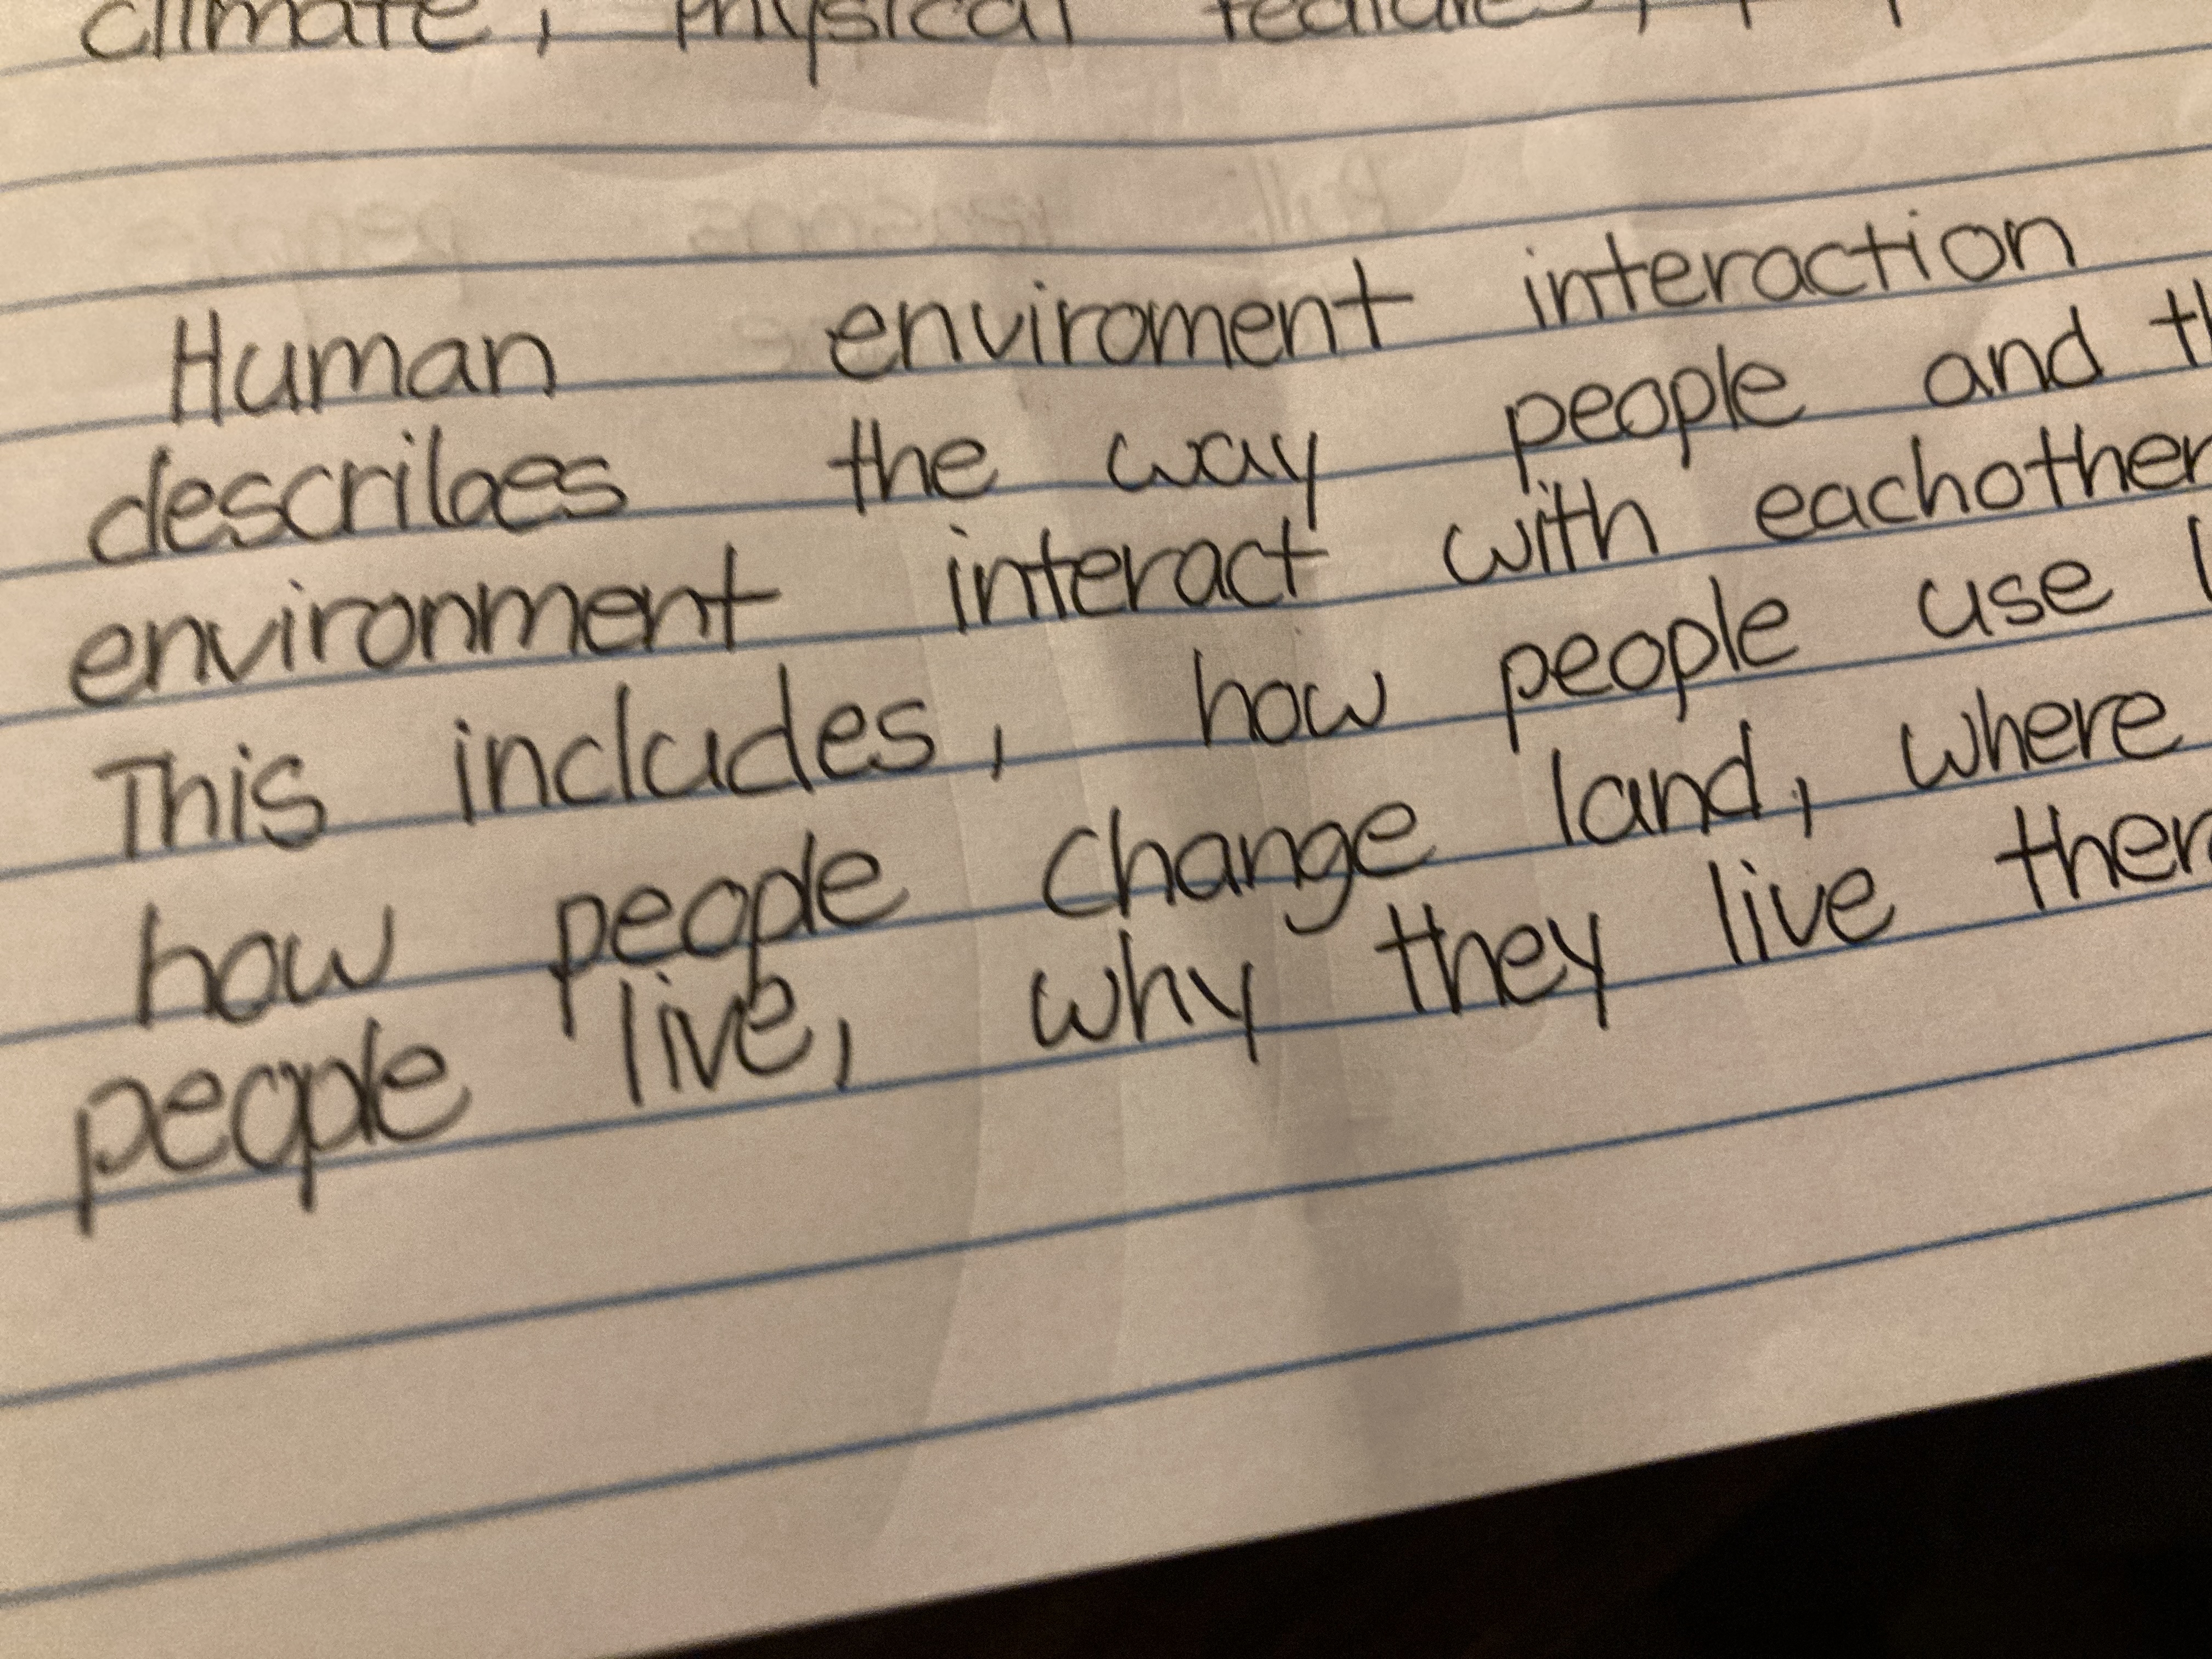 climate, physical
Human enviroment interaction
describes the way people and
environment interact with eachother
This includes, how people use
how people change land, where
people live, why they live